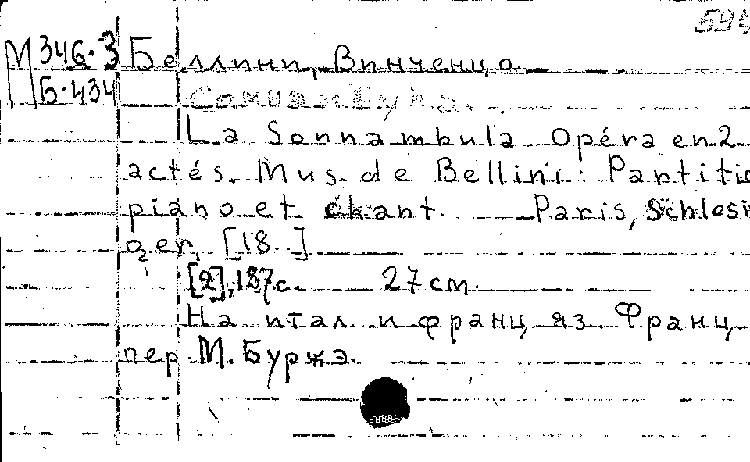 М 346-3 Беллини, Винченцо
Б-434 Сомнамбула.
La Sonnambula Opéra en 2
actés. Mus. de Bellini. Partitio
piano et chant. Paris, Schlesin
ger, [18..]
[2], 187 с. 27 cm.
На итал. и франц яз. Франц
пер. М. Буржэ.